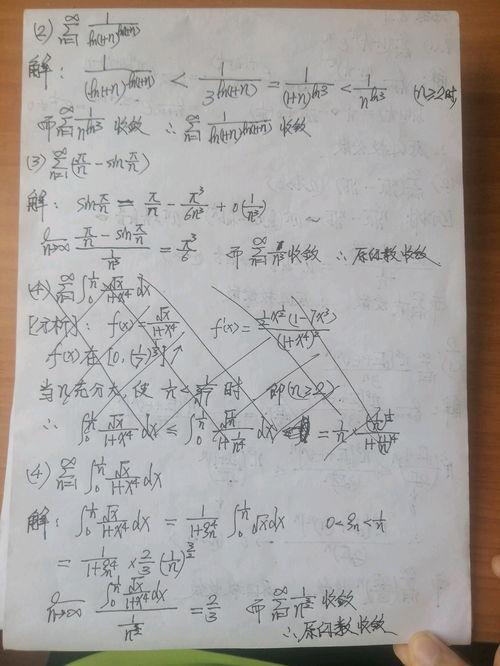 (2) ∑_{n=1}^{∞} 1/ln(1+n)^{ln(1+n)}
解: 1/(ln(1+n))^{ln(1+n)} < 1/3^{ln(1+n)} = 1/(1+n)^{ln3} < 1/n^{ln3}
而∑_{n=1}^{∞} 1/n^{ln3} 收敛 ∴ ∑_{n=1}^{∞} 1/ln(1+n)^{ln(1+n)} 收敛
(3) ∑_{n=1}^{∞} (π/n - sin π/n)
解: sin π/n = π/n - π³/6n³ + o(1/n³)
lim_{n→∞} (π/n - sin π/n)/(1/n³) = π³/6 而 ∑_{n=1}^{∞} 1/n³ 收敛 ∴ 原级数收敛
(4) ∑_{n=1}^{∞} ∫_0^{1/n} √x/(1+x⁴) dx
[分析]: f(x) = √x/(1+x⁴) f'(x) = ½x^{-½}(1-7x⁴)/(1+x⁴)²
当n充分大, 使 时 即(n≥2)
∴ ∫_0^{1/n} √x/(1+x⁴) dx ≤ ∫_0^{1/n}
(4) ∑_{n=1}^{∞} ∫_0^{1/n} √x/(1+x⁴) dx
解: ∫_0^{1/n} √x/(1+x⁴) dx = 1/(1+ξn⁴) ∫_0^{1/n} √x dx 0<ξn<1/n
= 1/(1+ξn⁴) × 2/3 (1/n)^{3/2}
lim_{n→∞} ∫_0^{1/n} √x/(1+x⁴) dx / (1/n^{3/2}) = 2/3 而 ∑_{n=1}^{∞} 1/n^{3/2} 收敛
∴ 原级数收敛